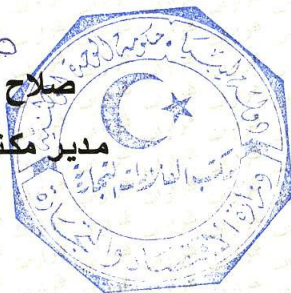 صلاح
مدير مكت
دولة ليبيا - حكومة الوحدة الوطنية
مكتب العلامات التجارية
وزارة الاقتصاد والتجارة